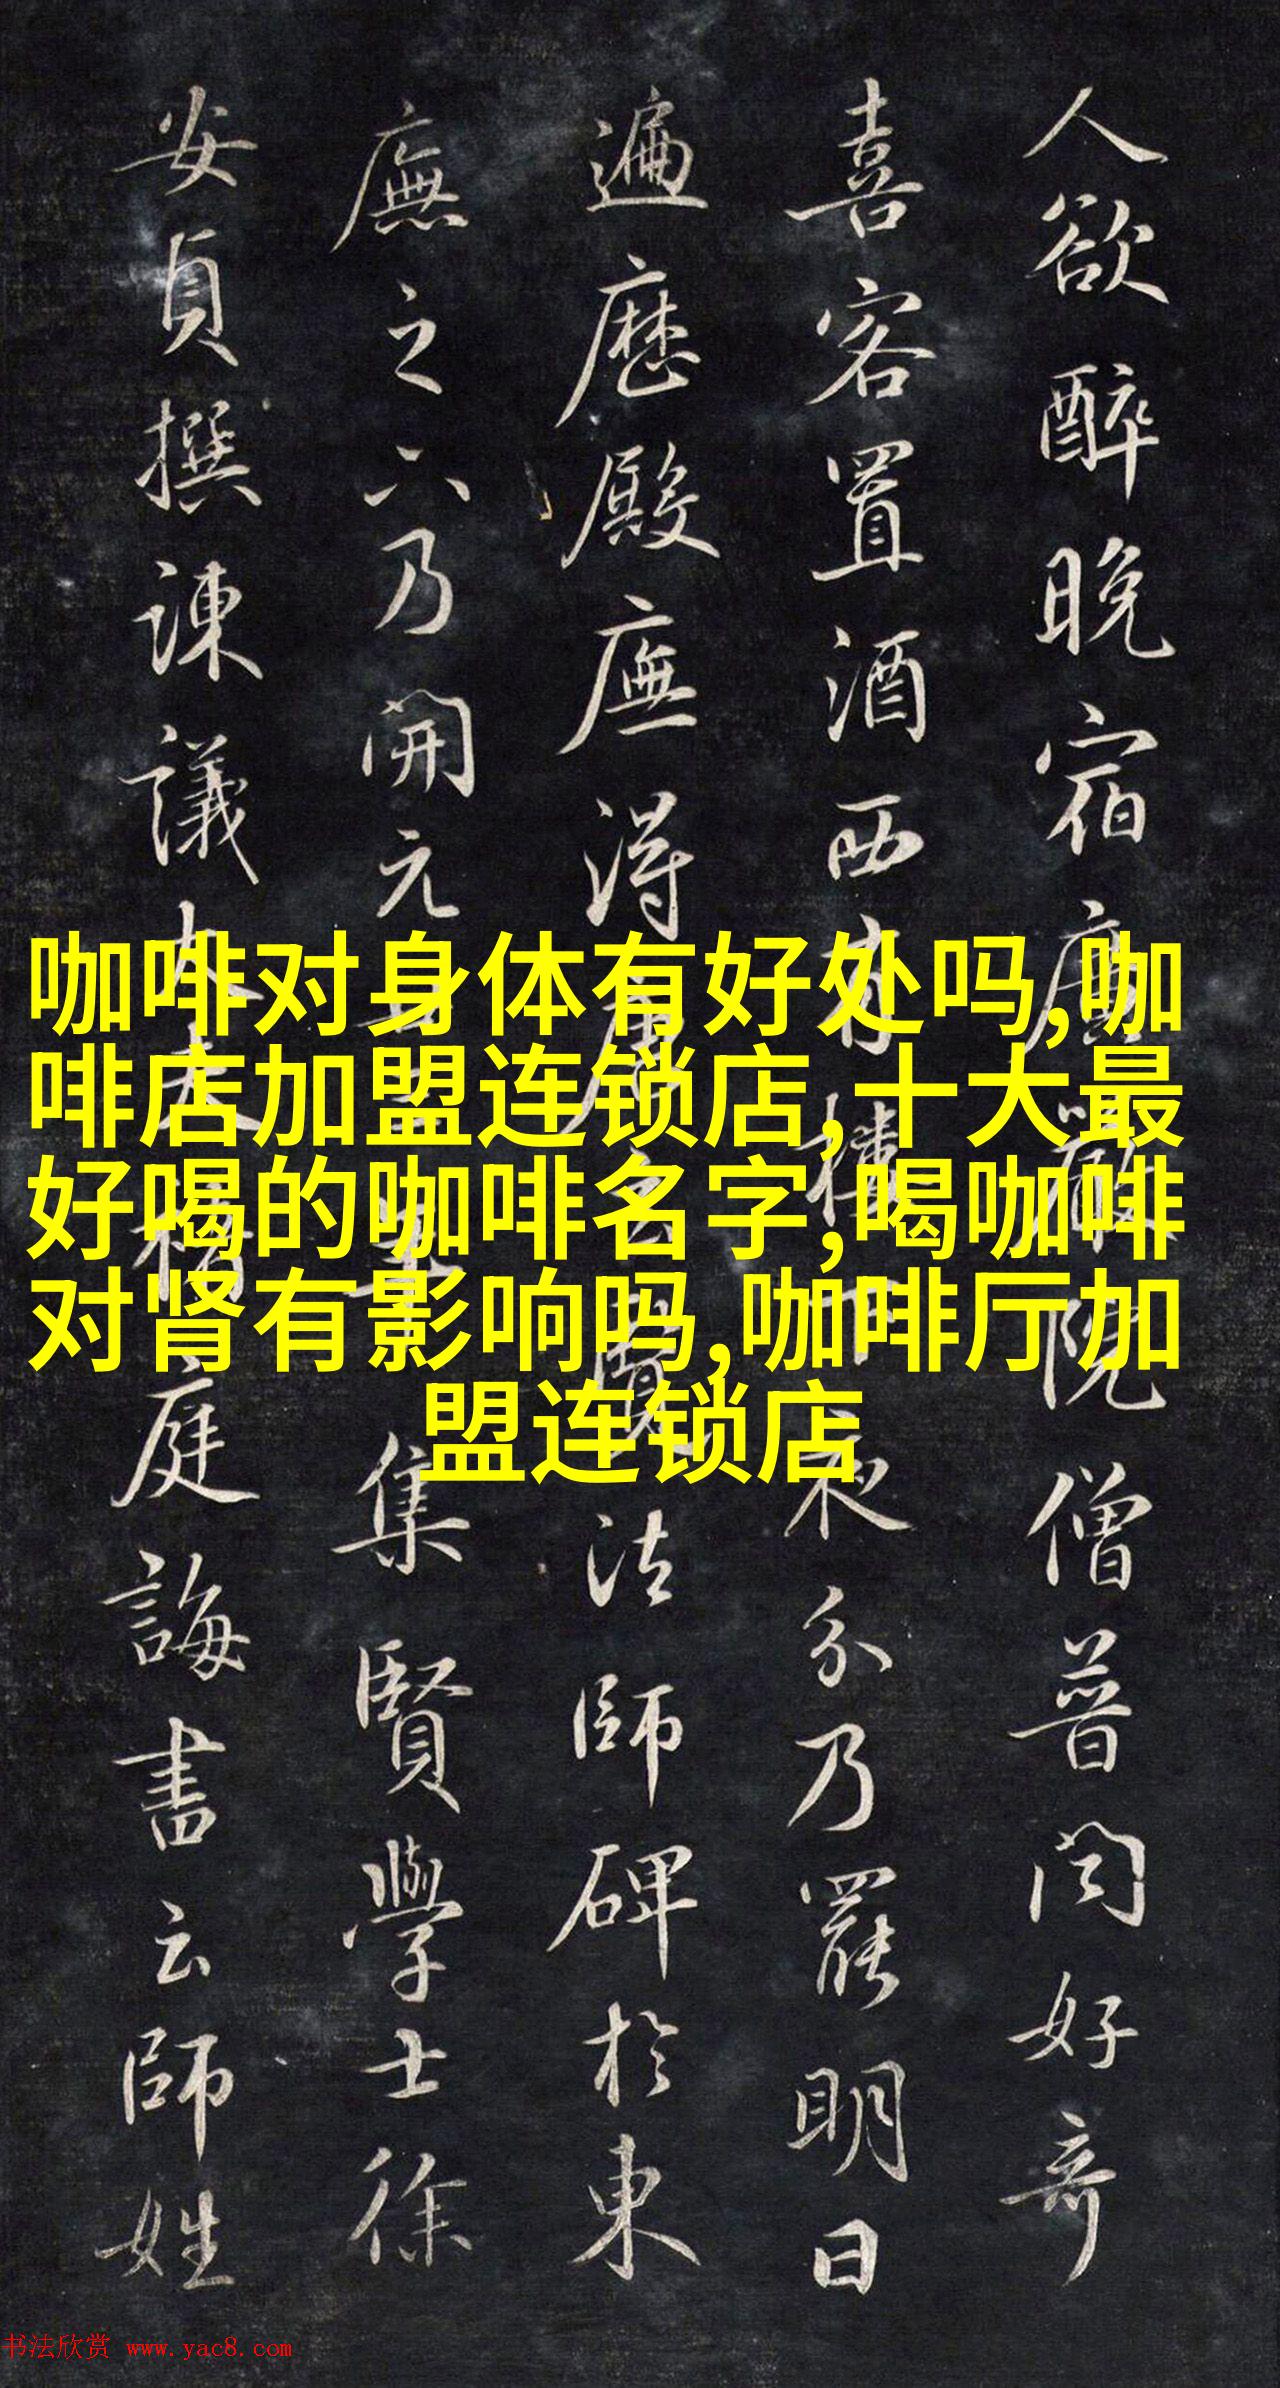 人欲醉晚宿廣嚴院僧普閏好奇
喜客置酒西
分乃罷明日
遍歷殿廡得
法師碑於東
廡之
乃開元
集賢學士徐
安貞撰諫議大夫褚庭誨書云師姓
咖啡对身体有好处吗,咖
啡店加盟连锁店,十大最
好喝的咖啡名字,喝咖啡
对肾有影响吗,咖啡厅加
盟连锁店
书法欣赏 www.yac8.com